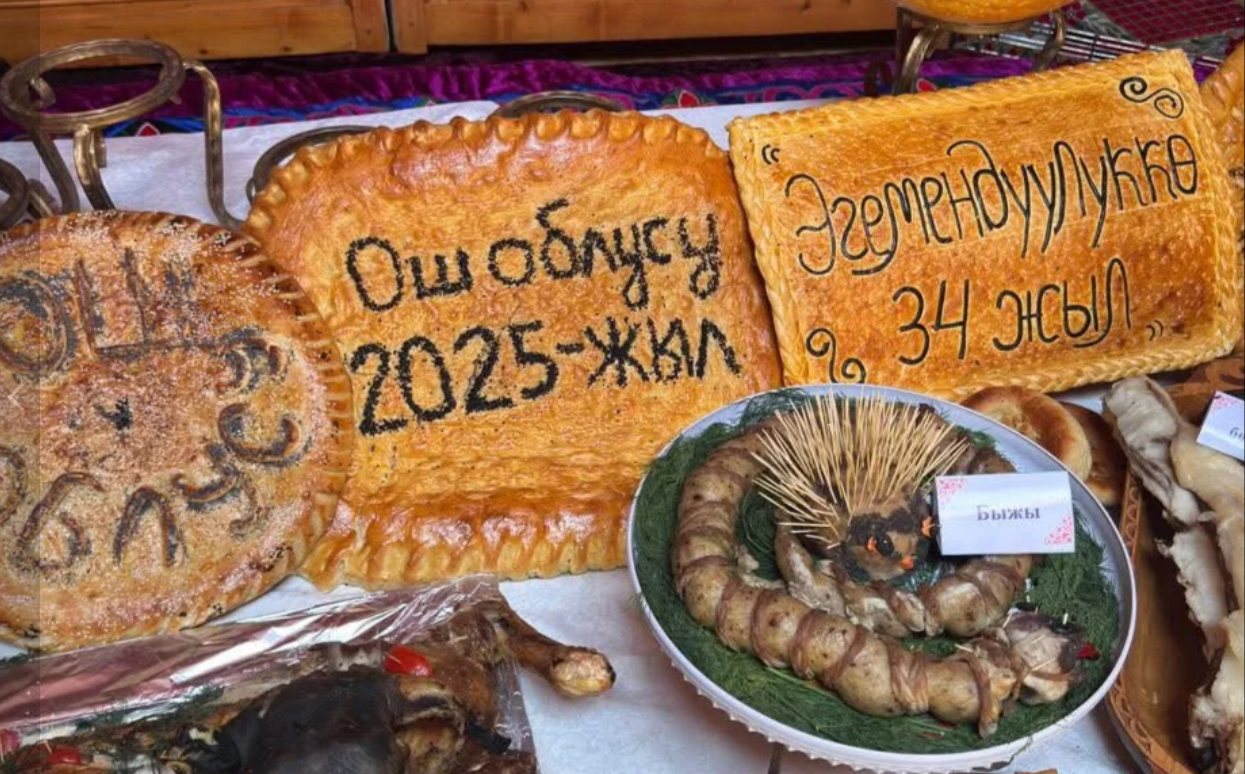 ОШ
ОБЛУСУ
Ош облусу
2025-жыл
"Эгемендүүлүккө
34 жыл"
Быжы